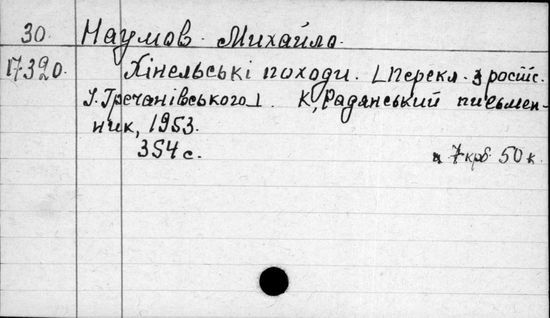 30. Наумов Михайло.
17320. Хінельські походи. [Перекл. з російс.
І. Гречанівського]. К, Радянський письмен-
ник, 1953.
354 с. 7 крб 50 к.